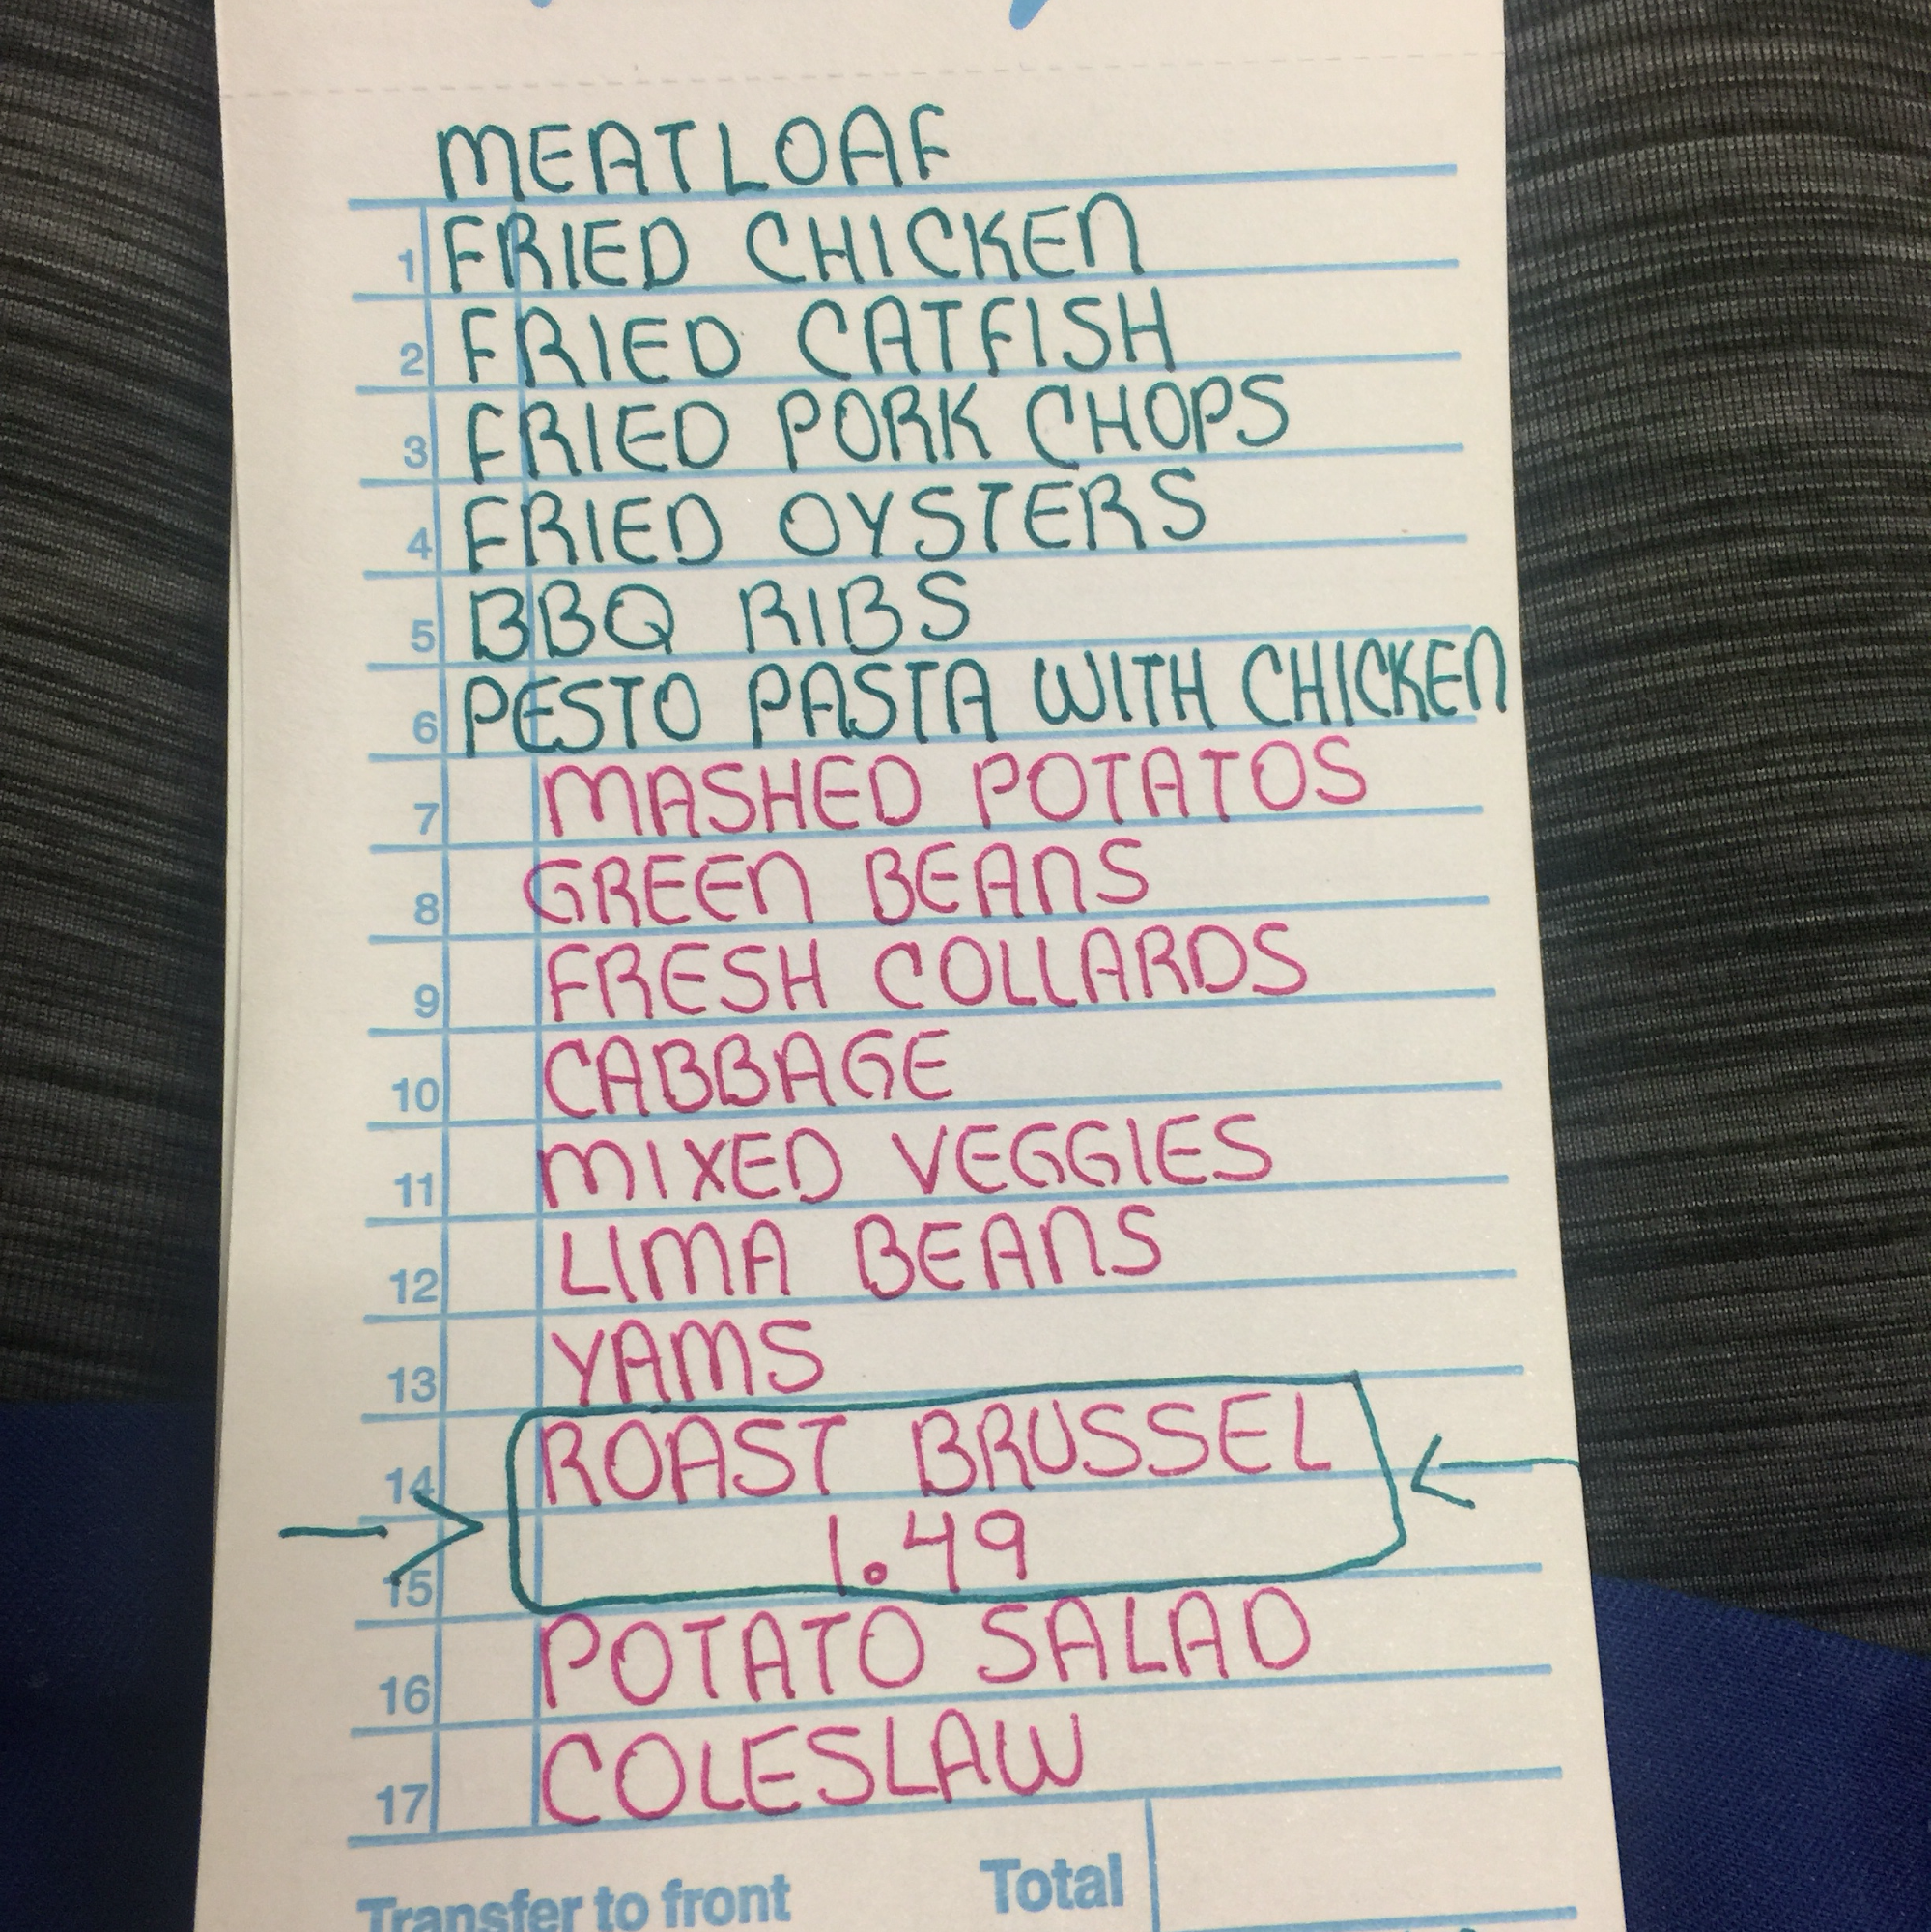 MEATLOAF
1 FRIED CHICKEN
2 FRIED CATFISH
3 FRIED PORK CHOPS
4 FRIED OYSTERS
5 BBQ RIBS
6 PESTO PASTA WITH CHICKEN
7 MASHED POTATOS
8 GREEN BEANS
9 FRESH COLLARDS
10 CABBAGE
11 MIXED VEGGIES
12 LIMA BEANS
13 YAMS
14 ROAST BRUSSEL
15 1.49
16 POTATO SALAD
17 COLESLAW
Transfer to front Total